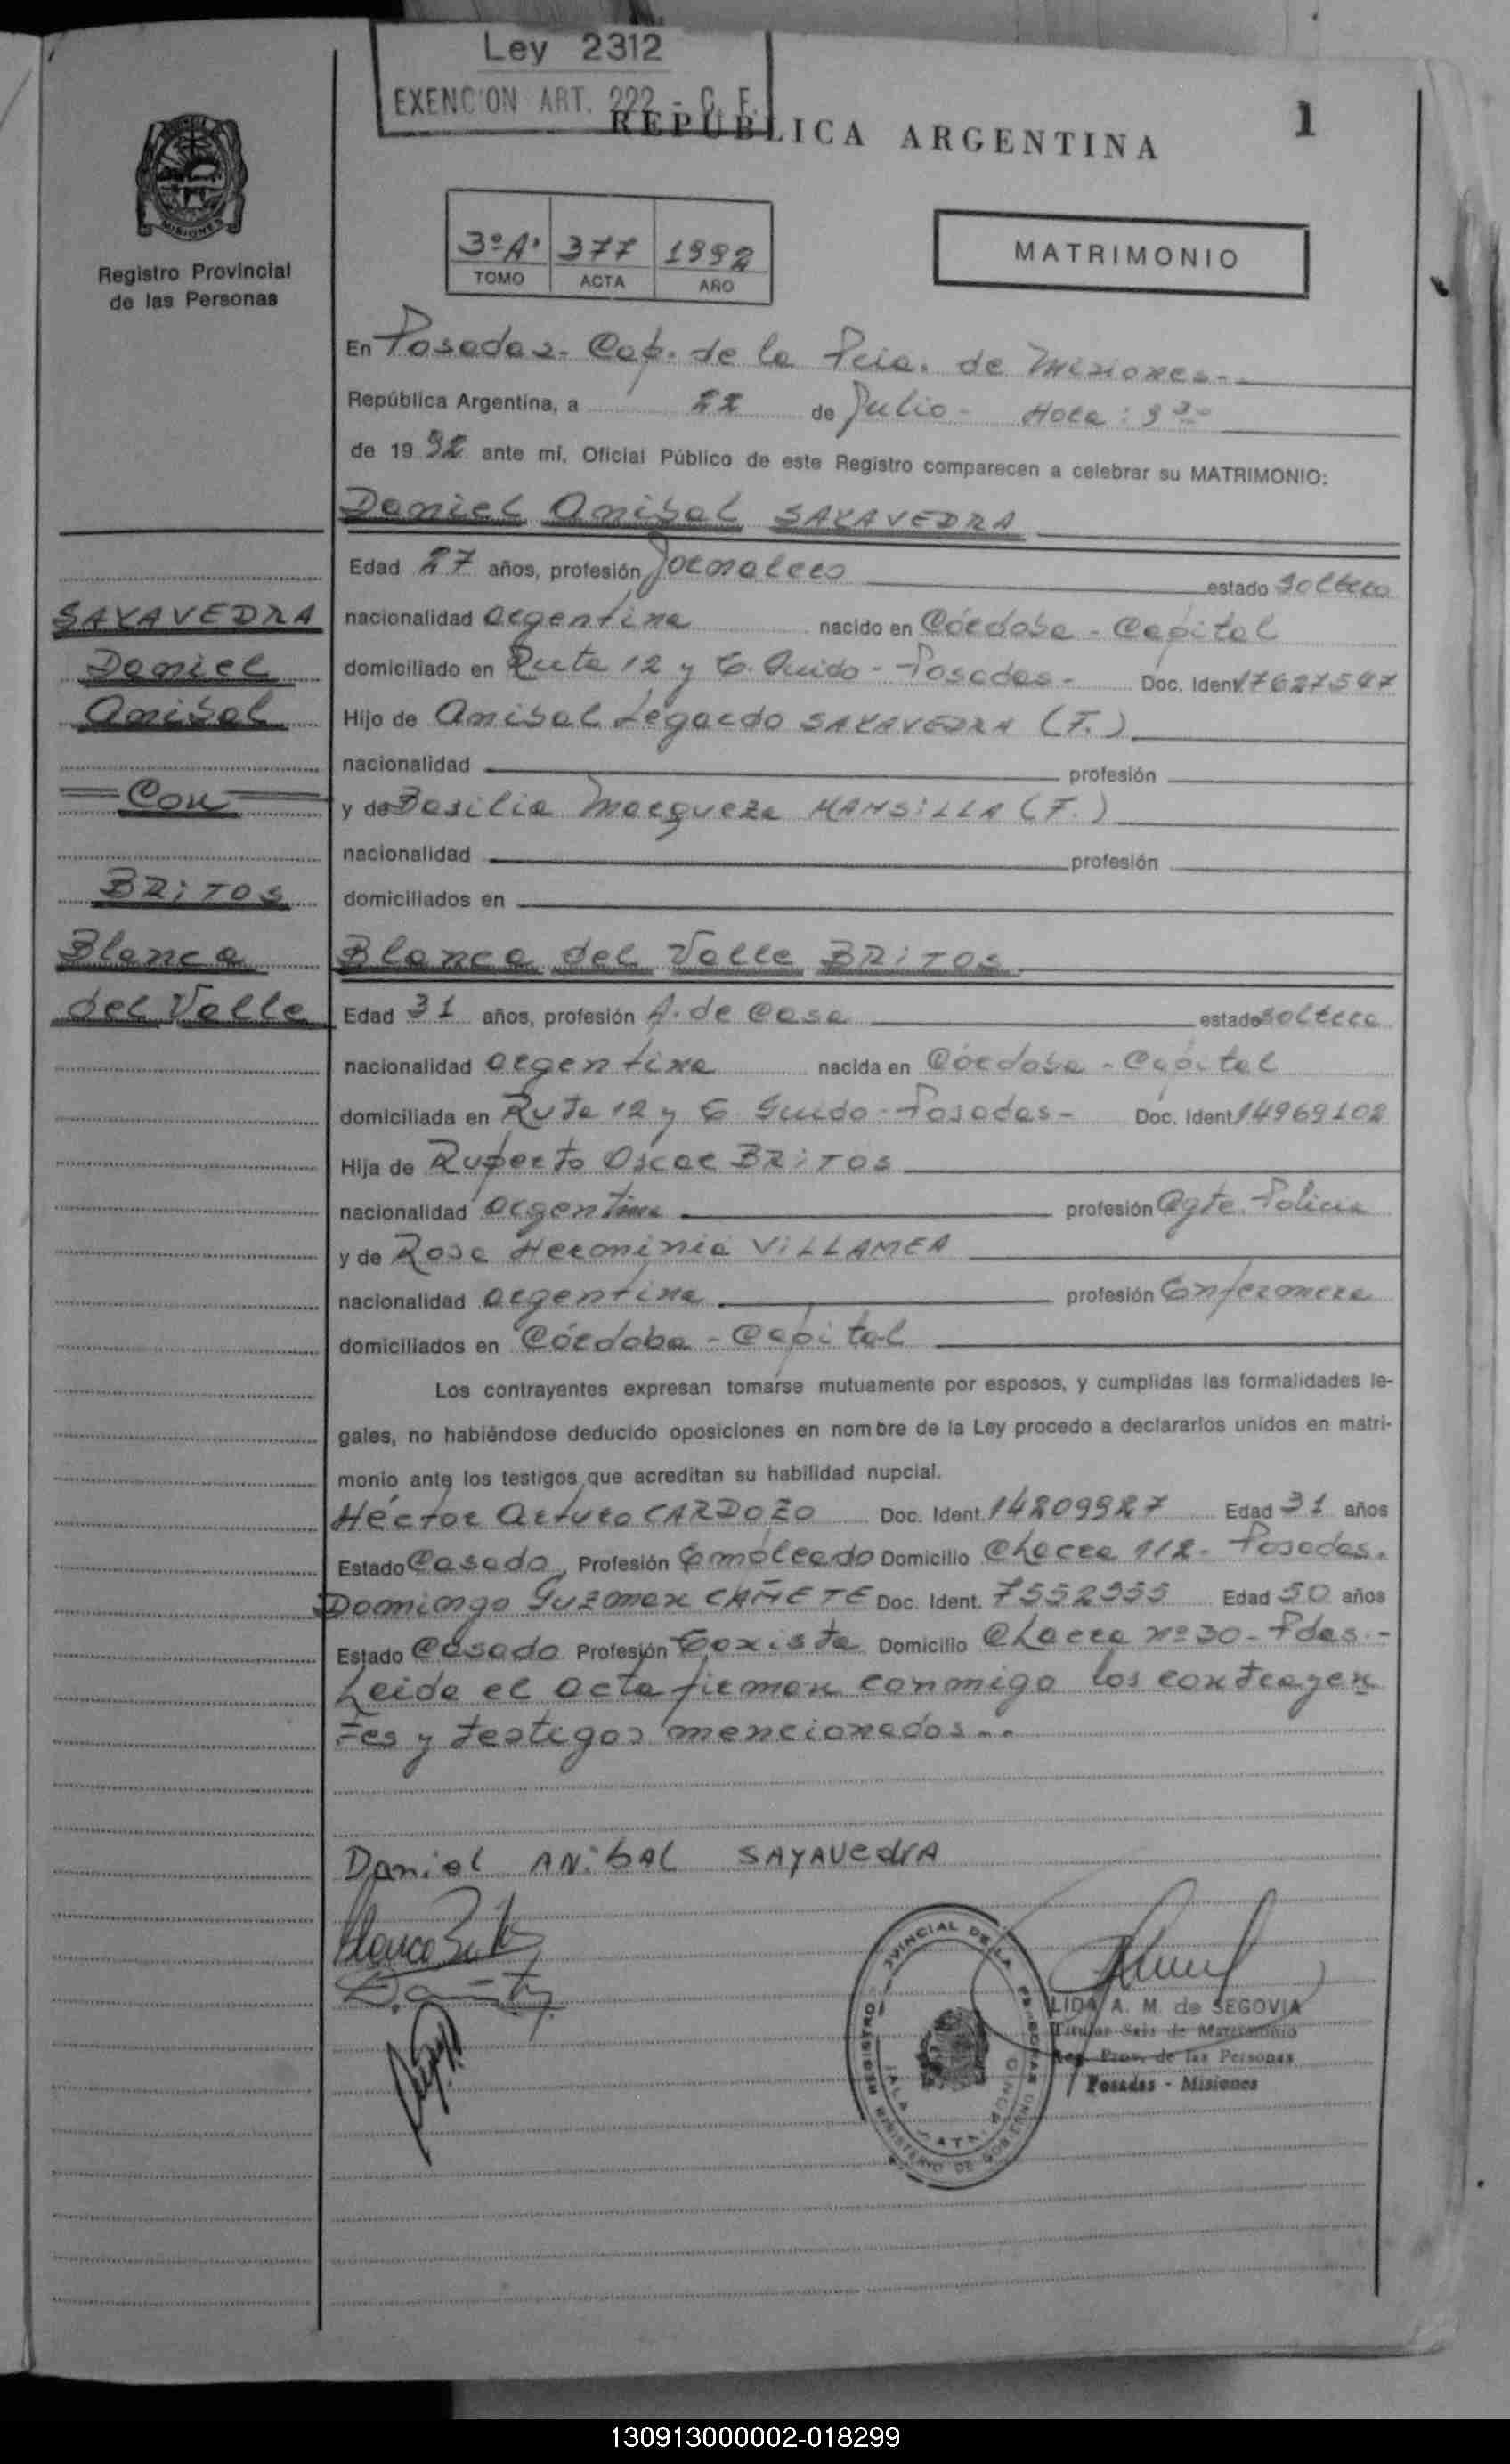 Ley 2312
EXENCION ART. 222 - C. F.
REPUBLICA ARGENTINA
1
MISIONES
Registro Provincial
de las Personas
3º A' 377 1992
TOMO ACTA AÑO
MATRIMONIO
En Posadas - Cap. de la Pcia. de Misiones -
República Argentina, a 22 de Julio - Hora: 9 30
de 19 92 ante mí, Oficial Público de este Registro comparecen a celebrar su MATRIMONIO:
Daniel Anibal SAYAVEDRA
Edad 27 años, profesión Jornalero estado soltero
SAYAVEDRA
Daniel
Anibal
Con
BRITOS
Blanca
del Valle
nacionalidad argentina nacido en Córdoba - Capital
domiciliado en Ruta 12 y Guido - Posadas - Doc. Ident. 17627547
Hijo de Anibal Legardo SAYAVEDRA (F.)
nacionalidad profesión
y de Basilia Marqueza MANSILLA (F.)
nacionalidad profesión
domiciliados en
Blanca del Valle BRITOS
Edad 31 años, profesión A. de Casa estado soltera
nacionalidad argentina nacida en Córdoba - Capital
domiciliada en Ruta 12 y Guido - Posadas - Doc. Ident. 14969102
Hija de Ruperto Oscar BRITOS
nacionalidad argentina profesión Agte. Policia
y de Rosa Herominia VILLAMEA
nacionalidad argentina profesión Enfermera
domiciliados en Córdoba - Capital
Los contrayentes expresan tomarse mutuamente por esposos, y cumplidas las formalidades le-
gales, no habiéndose deducido oposiciones en nombre de la Ley procedo a declararlos unidos en matri-
monio ante los testigos que acreditan su habilidad nupcial.
Héctor Arturo CARDOZO Doc. Ident. 14209927 Edad 31 años
Estado Casado Profesión Empleado Domicilio Chacra 112 - Posadas.
Domingo Guzman CAÑETE Doc. Ident. 7552955 Edad 50 años
Estado Casado Profesión Domicilio Chacra nº 30 - Pdas. -
Leida el acta firman conmigo los contrayen
tes y testigos mencionados - -
Daniel ANibAL SAYAVedrA
Blanca Britos
LIDA A. M. de SEGOVIA
Titular Sala de Matrimonio
Reg. Prov. de las Personas
Posadas - Misiones
REGISTRO PROVINCIAL DE LA PERSONAS
MINISTERIO DE GOBIERNO
130913000002-018299